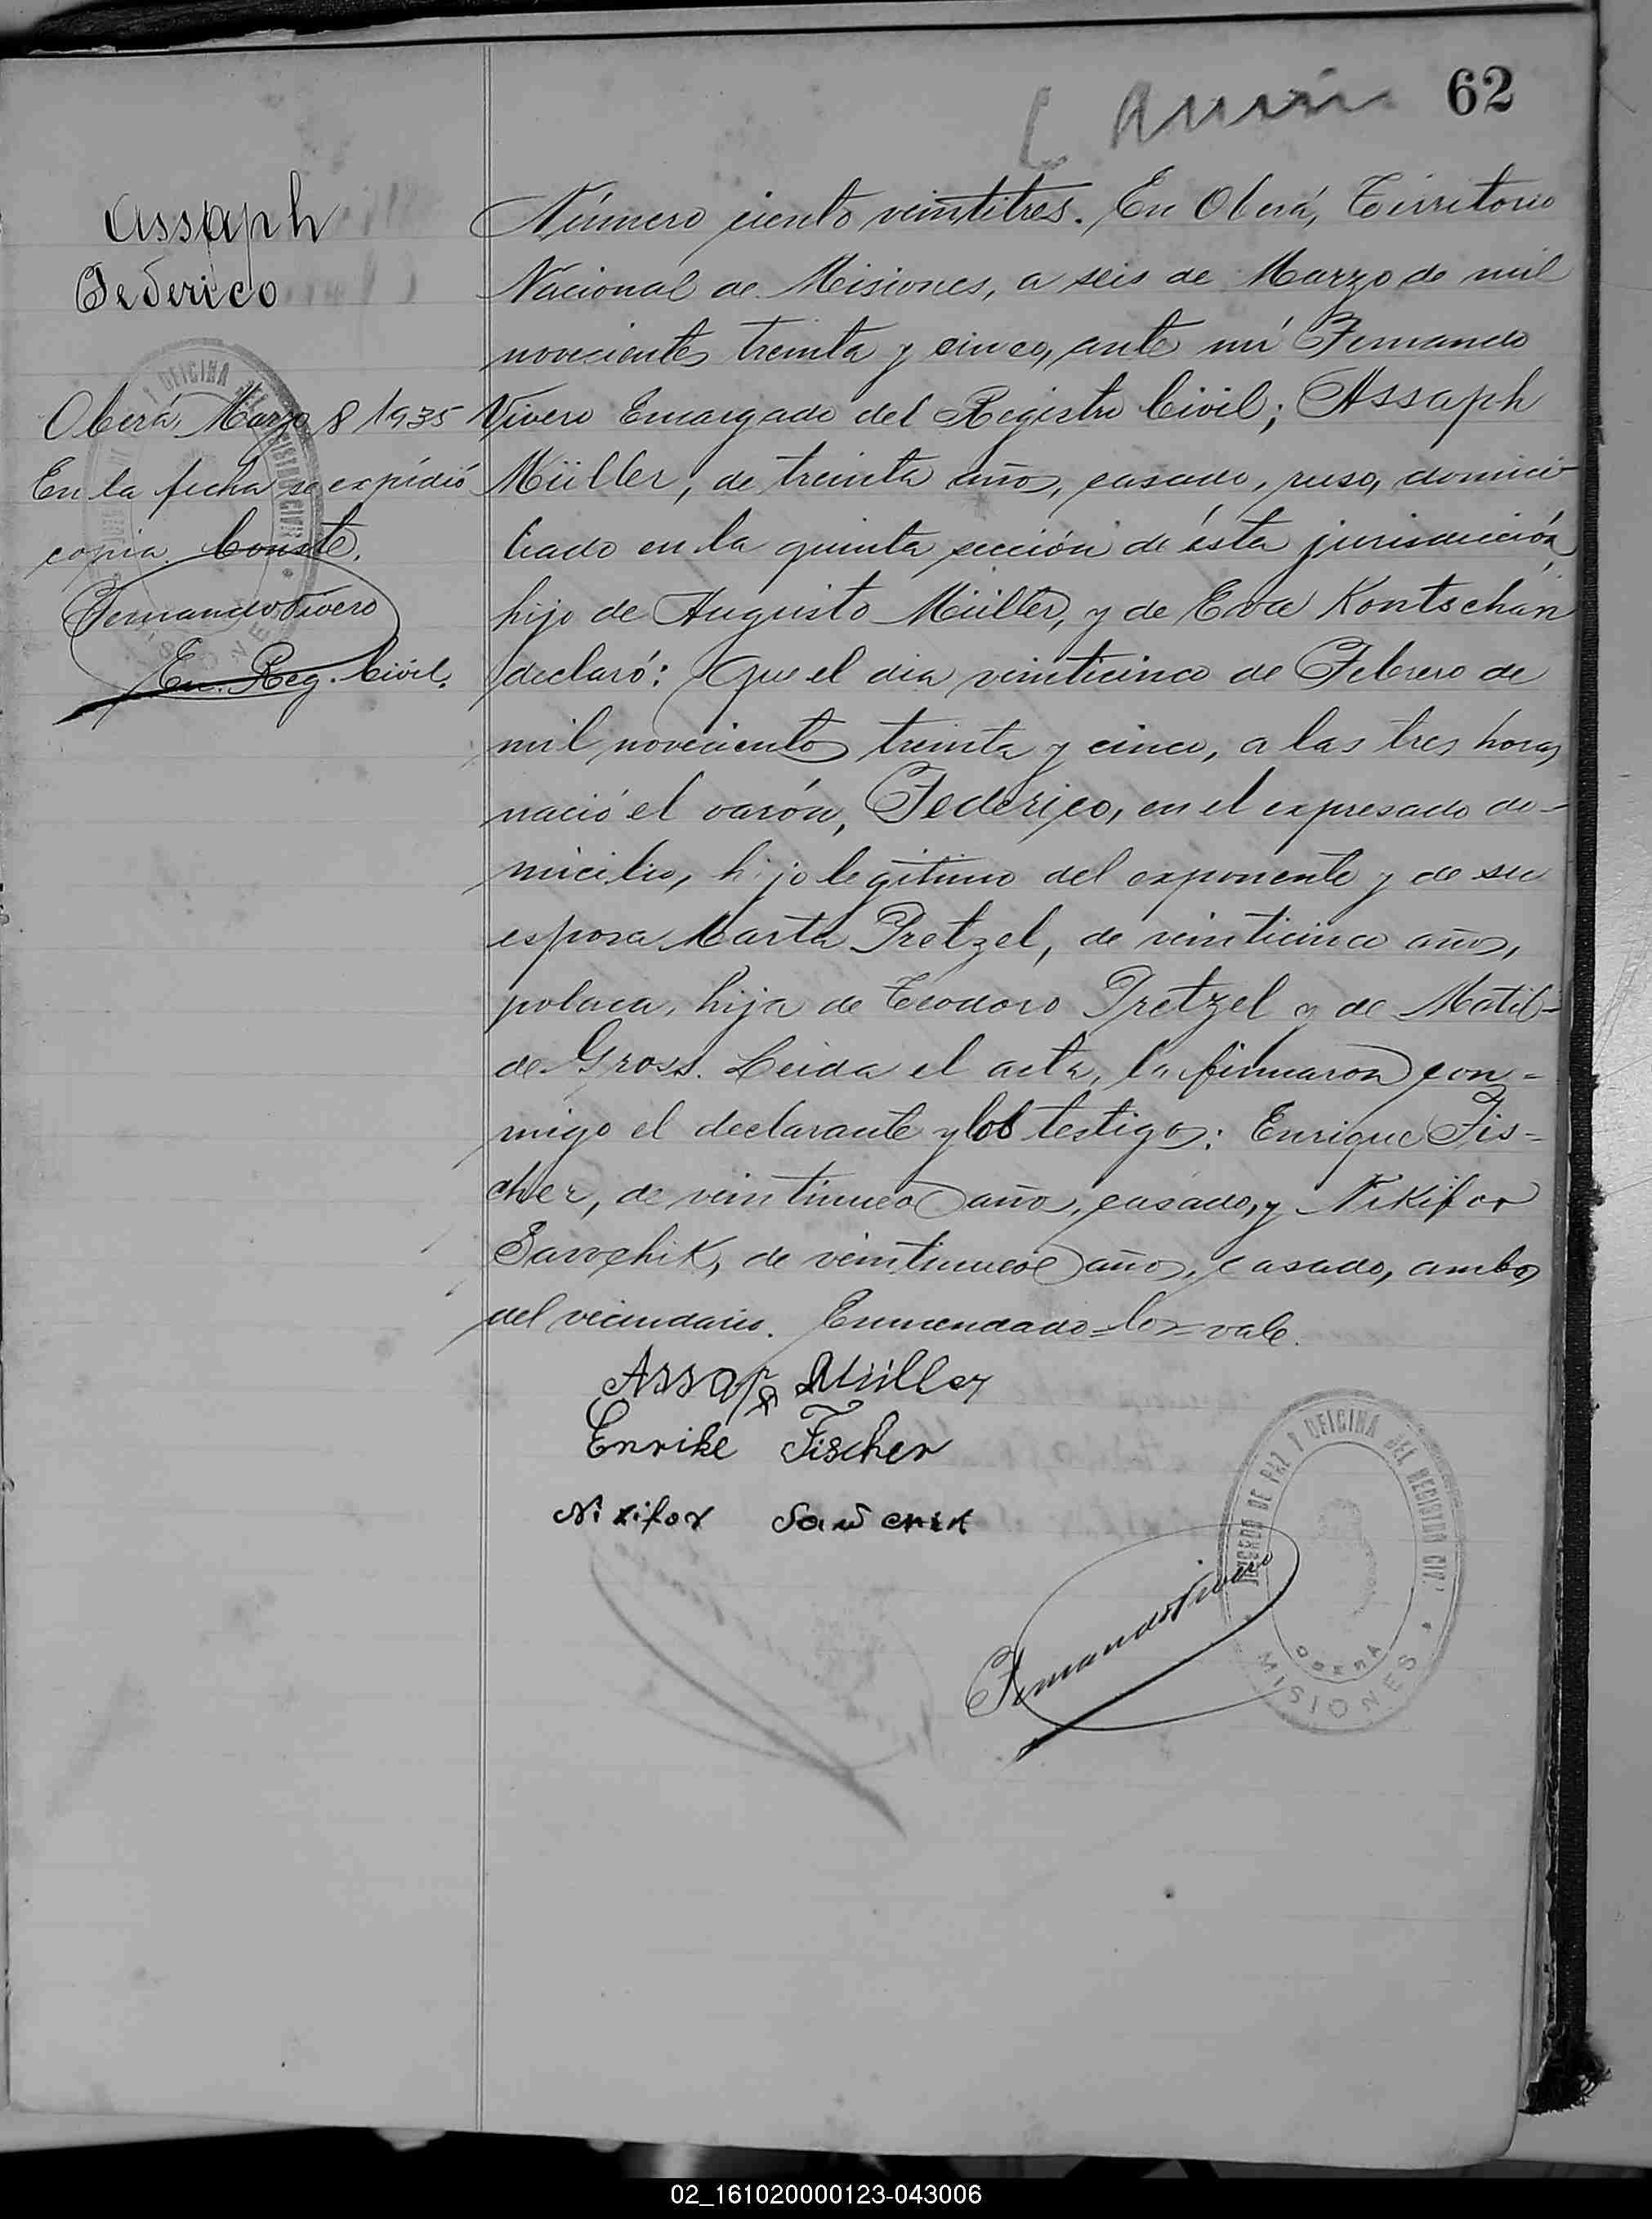 62
Assaph
Federico
Oberá, Marzo 8 1935
En la fecha se expidió
copia. Conste.
Fernando Vivero
En. Reg. Civil.
Número ciento veintitres. En Oberá, Territorio
Nacional de Misiones, a seis de Marzo de mil
novecientos treinta y cinco, ante mí Fernando
Vivero Encargado del Registro Civil; Assaph
Müller, de treinta años, casado, ruso, domici-
liado en la quinta sección de ésta jurisdicción,
hijo de Augusto Müller, y de Eva Kontschan
declaró: Que el dia veinticinco de Febrero de
mil novecientos treinta y cinco, a las tres horas
nació el varón, Federico, en el expresado do-
micilio, hijo legítimo del exponente y de su
esposa Marta Pretzel, de veinticinco años,
polaca, hija de Teodoro Pretzel y de Matil-
de Gross. Leida el acta, la firmaron con-
migo el declarante y los testigos: Enrique Fis-
cher, de veintinueve años, casado, y Nikifor
Savchik, de veintinueve años, casado, ambos
del vecindario. Enmendado=los=vale.
Assaph Müller
Enrike Fischer
Nikifor Sawchik
Fernando Vivero
JUZGADO DE PAZ Y OFICINA DEL REGISTRO CIVIL
OBERA
MISIONES
02_161020000123-043006